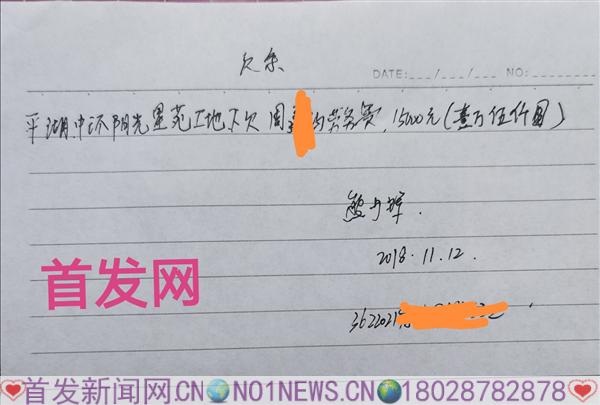 欠条
DATE:___/___/___ NO:________
平湖中环阳光星苑工地下欠周 的劳务费,15000元(壹万伍仟圆)
2018.11.12.
首发网
首发新闻网.CN NO1NEWS.CN 18028782878